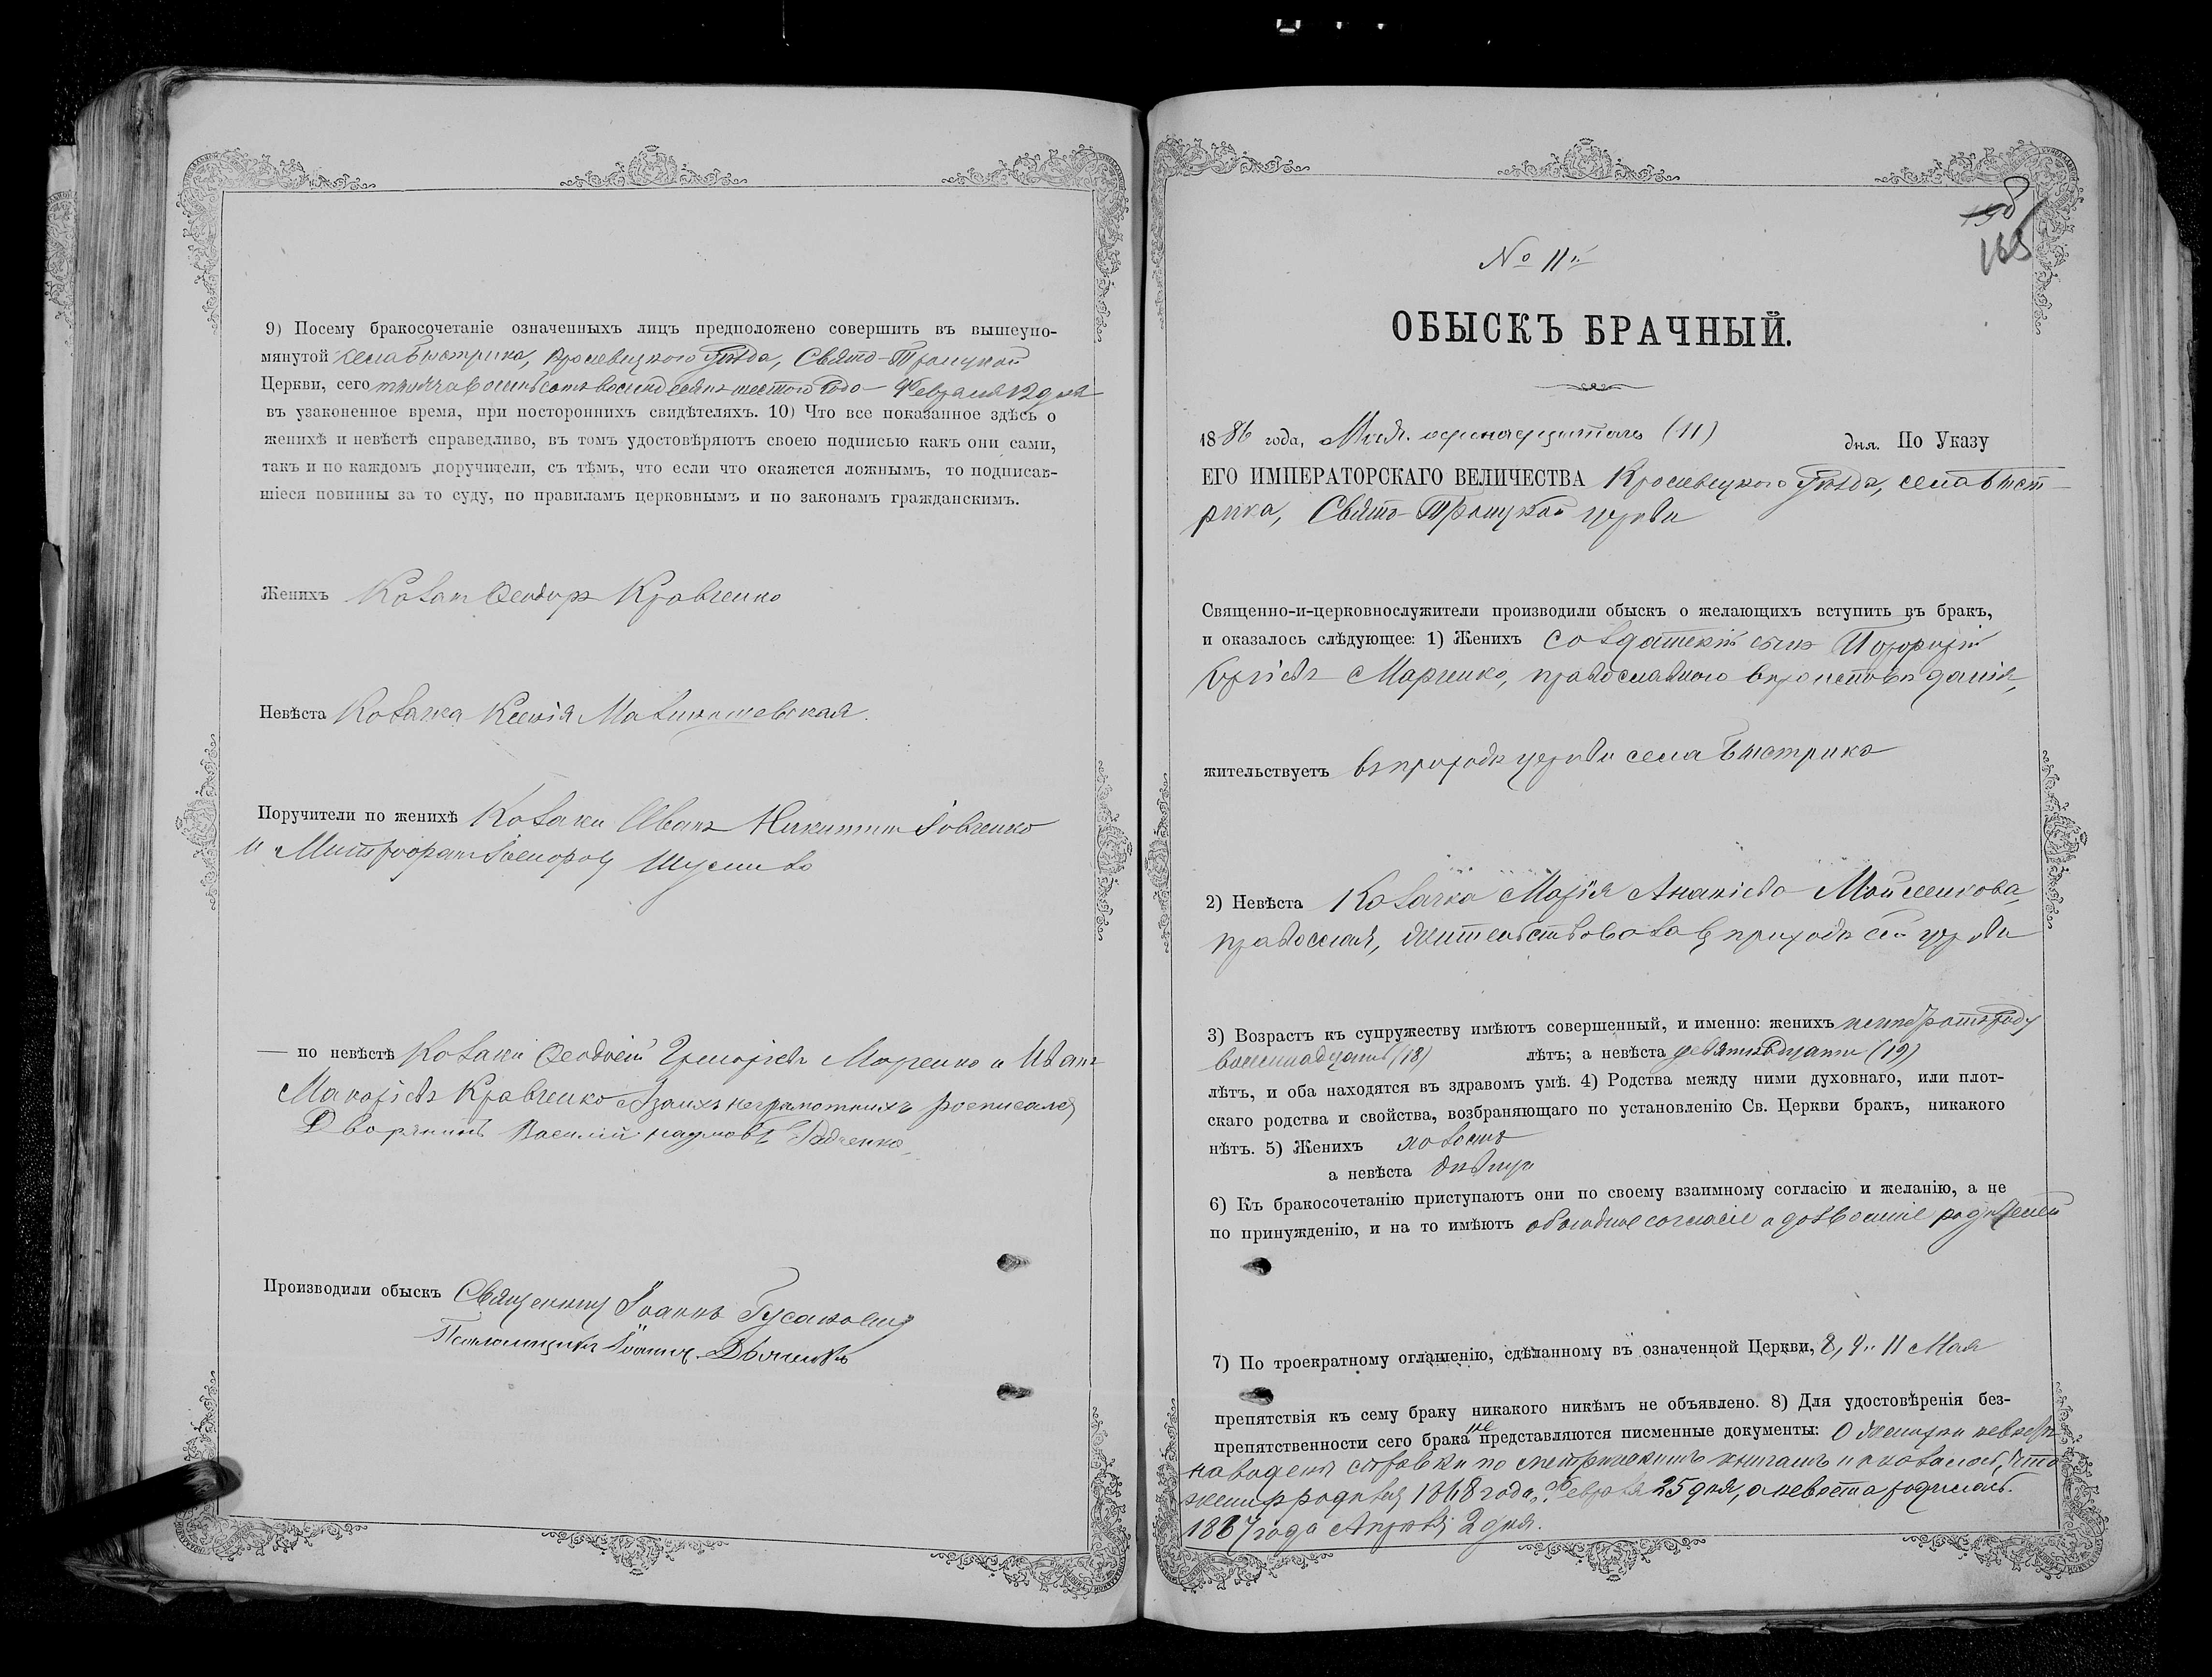 9) Посему бракосочетаніе означенныхъ лицъ предположено совершить въ вышеупо-
мянутой села Быстрика, Кролевецкого Уѣзда, Свято-Троицкой
Церкви, сего тысяча восемьсотъ восемьдесятъ шестого года Февраля 12 дня
въ узаконенное время, при постороннихъ свидѣтеляхъ. 10) Что все показанное здѣсь о
женихѣ и невѣстѣ справедливо, въ томъ удостовѣряютъ своею подписью какъ они сами,
такъ и по каждомъ поручители, съ тѣмъ, что если что окажется ложнымъ, то подписав-
шіеся повинны за то суду, по правиламъ церковнымъ и по законамъ гражданскимъ.
Женихъ Козакъ Ѳеодоръ Кравченко
Невѣста Козачка Ксенія
Поручители по женихѣ Козаки Иванъ Никитинъ
и Митрофанъ
— по невѣстѣ Козаки Григоріевъ Марченко и Иванъ
Макаріевъ Кравченко А за ихъ неграмотныхъ росписался
Дворянинъ Василій Наумовъ Радченко.
Производили обыскъ Священникъ Іоаннъ
Псаломщикъ Іоаннъ
158
165
№ 11й
ОБЫСКЪ БРАЧНЫЙ.
1886 года, Мая. одинадцатаго (11) дня. По Указу
ЕГО ИМПЕРАТОРСКАГО ВЕЛИЧЕСТВА Кролевецкого Уѣзда, села Быст-
рика, Свято-Троицкой церкви
Священно-и-церковнослужители производили обыскъ о желающихъ вступить въ бракъ,
и оказалось слѣдующее: 1) Женихъ солдатскій сынъ
Марченко, православного вѣроисповѣданія,
жительствуетъ въ приходѣ церкви села Быстрика
2) Невѣста Козачка Марія Ананіева
православная, жительствовала въ приходѣ сей церкви
3) Возрастъ къ супружеству имѣютъ совершенный, и именно: женихъ
восемнадцать (18) лѣтъ; а невѣста девятнадцати (19)
лѣтъ, и оба находятся въ здравомъ умѣ. 4) Родства между ними духовнаго, или плот-
скаго родства и свойства, возбраняющаго по установленію Св. Церкви бракъ, никакого
нѣтъ. 5) Женихъ холостъ
а невѣста дѣвица
6) Къ бракосочетанію приступаютъ они по своему взаимному согласію и желанію, а не
по принужденію, и на то имѣютъ обоюдное согласіе и дозволеніе родителей
7) По троекратному оглашенію, сдѣланному въ означенной Церкви, 8, 9 и 11 Мая
препятствія къ сему браку никакого никѣмъ не объявлено. 8) Для удостовѣренія без-
препятственности сего брака не представляются писменные документы: О женихѣ и невѣстѣ
наведены справки по метрическимъ книгамъ и оказалось, что
женихъ родился 1868 года, Февраля 25 дня, а невѣста родилась
1867 года Апрѣля 2 дня.